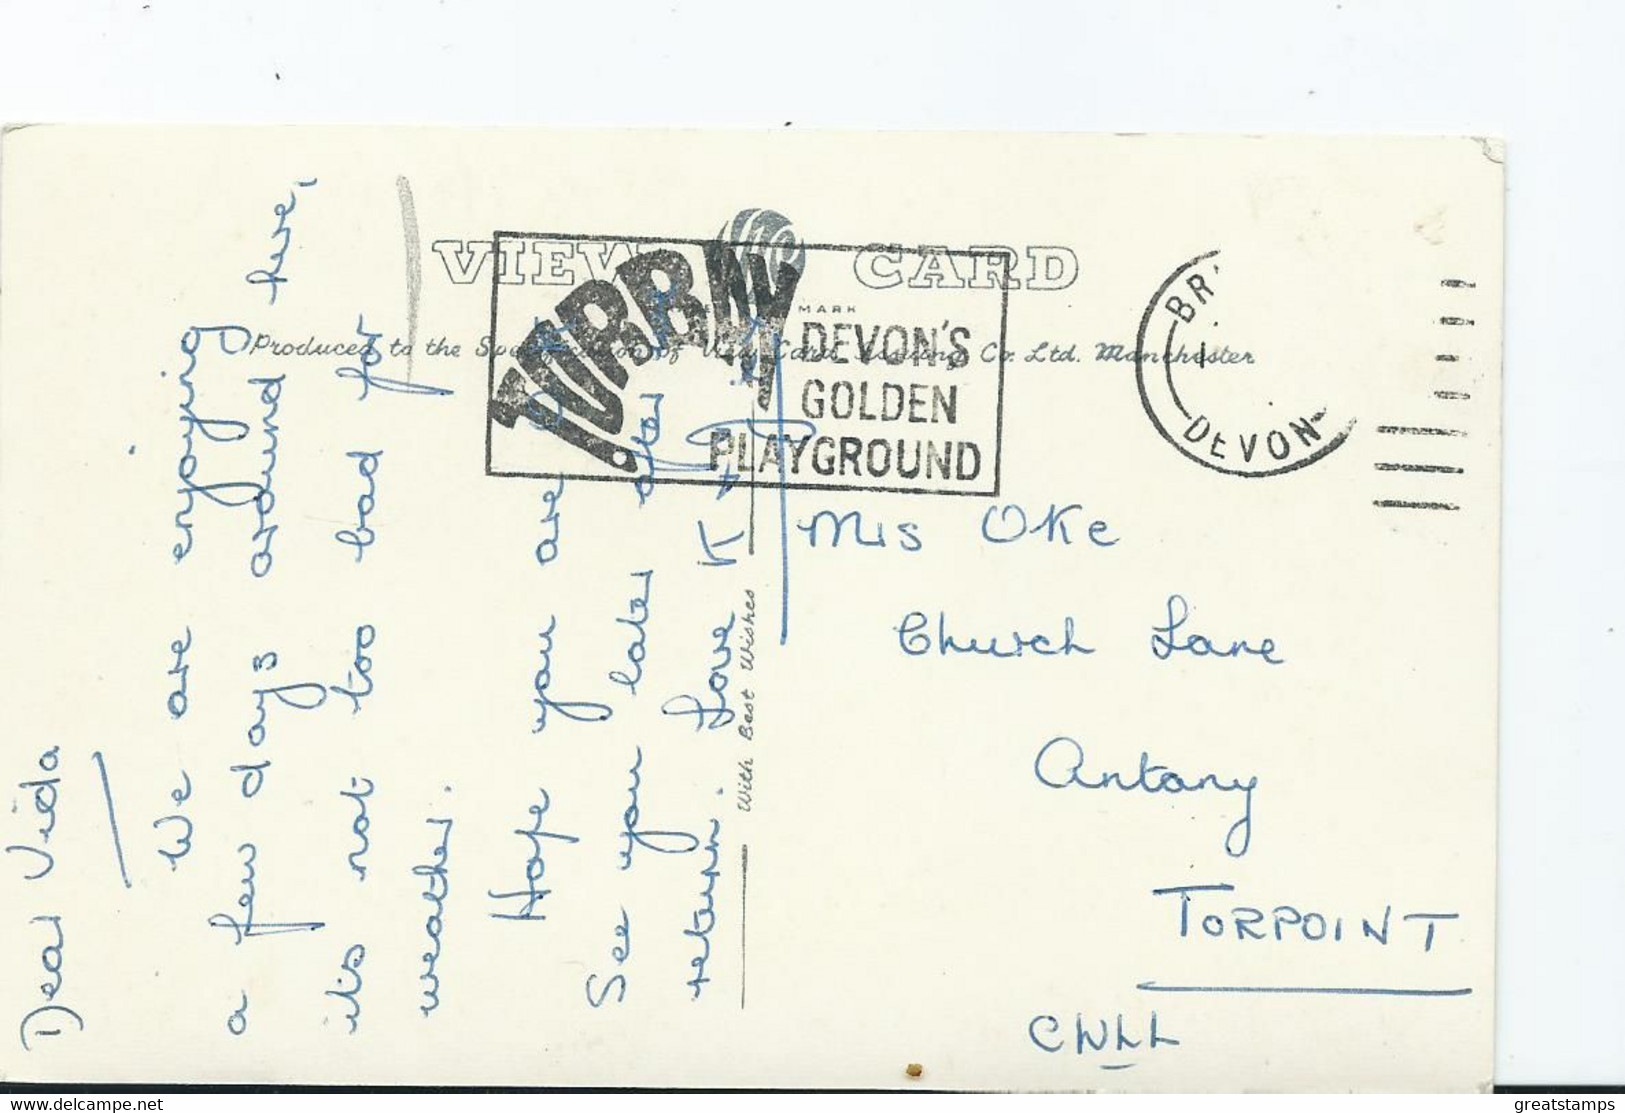 VIEW CARD
MARK
Produced to the Specification of View Card Issuing Co. Ltd. Manchester
TORBAY
DEVON'S
GOLDEN
PLAYGROUND
DEVON
With Best Wishes
Dear Vida
We are enjoying
a few days around here,
it's not too bad for
weather.
Hope you are
See you later after
return. Love K +
Mrs Oke
Church Lane
Antony
TORPOINT
CWLL
delcampe.net
greatstamps